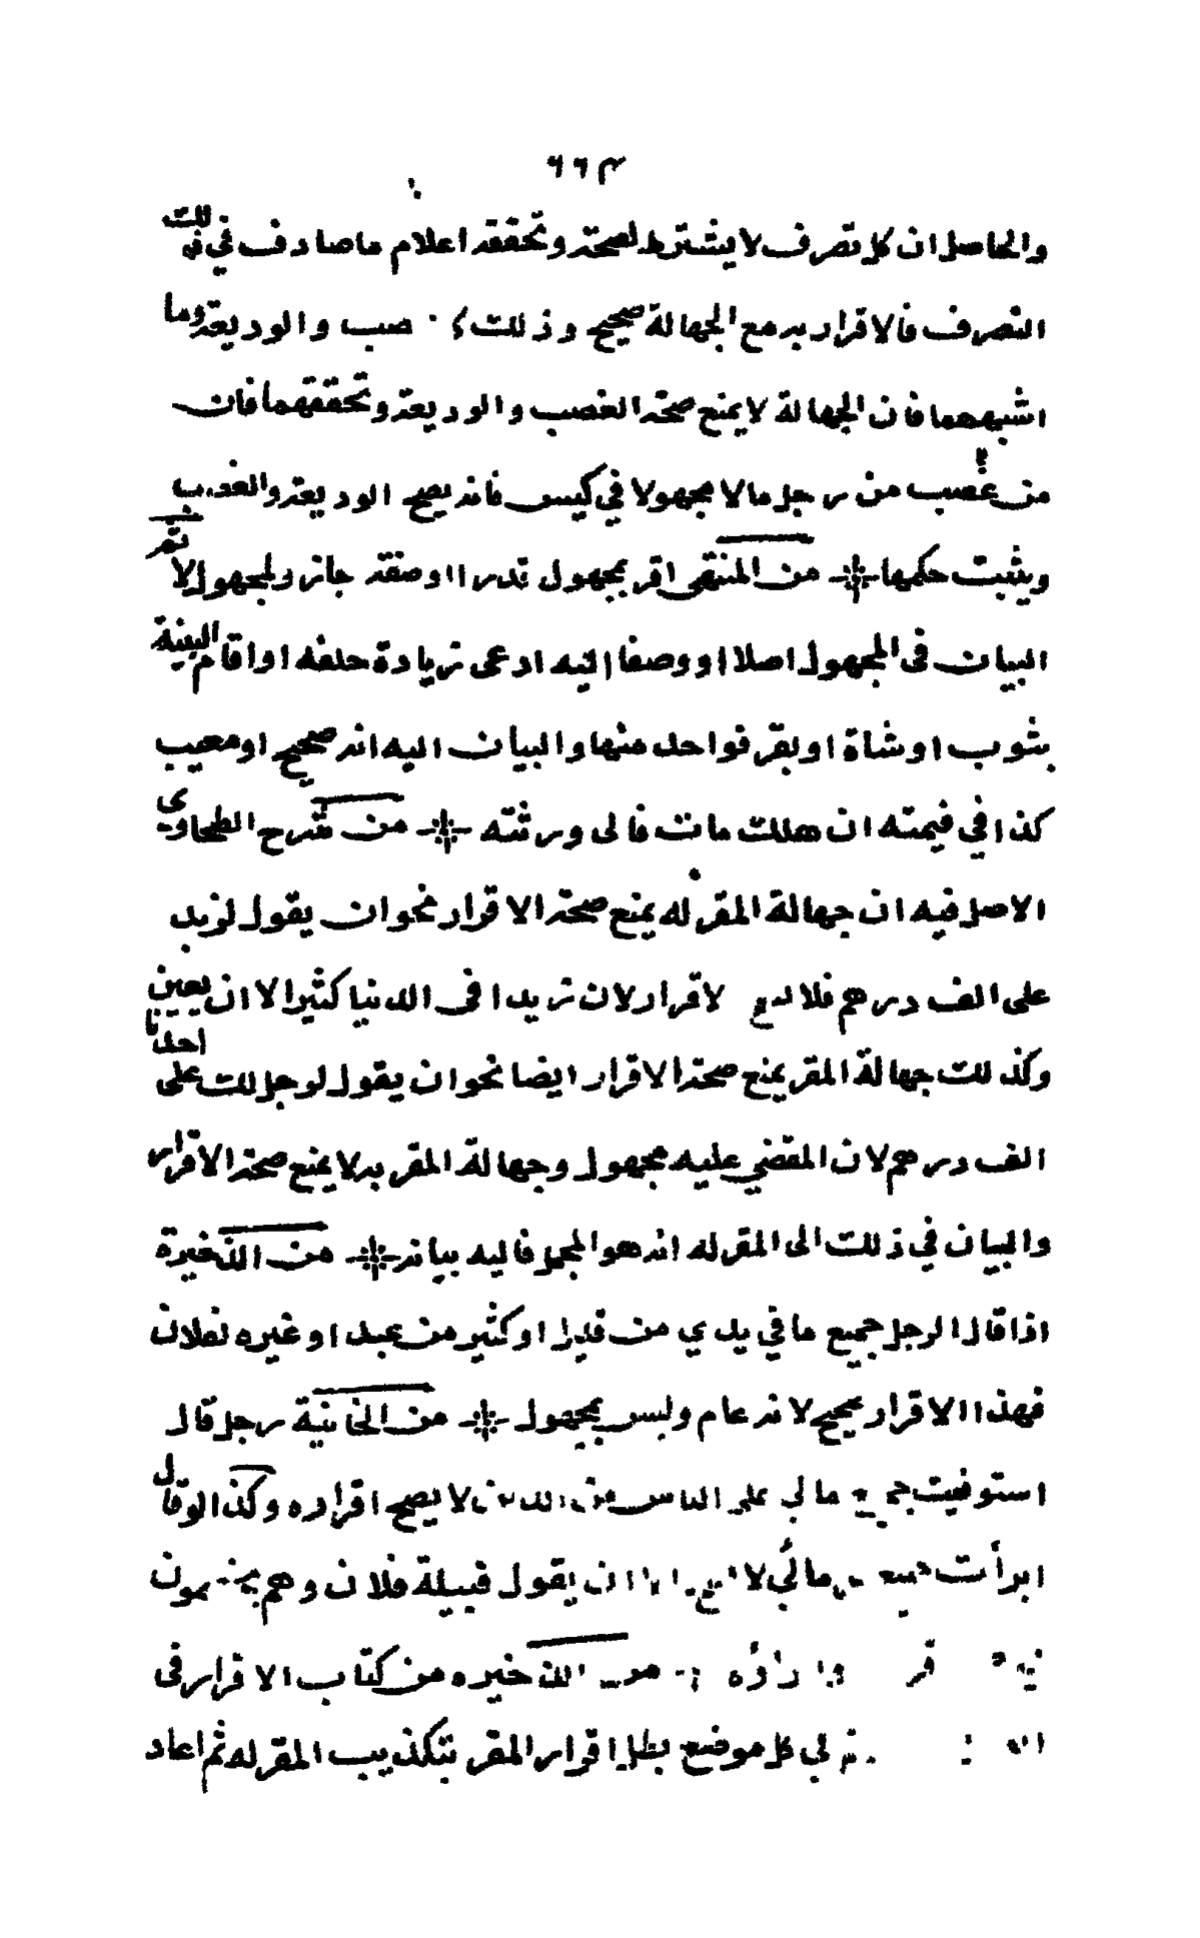 ٦٦٣
والحاصل ان كل تصرف لا يشترط لصحته وتحققه اعلام ما صادف في ذلك
التصرف فالاقرار به مع الجهالة صحيح وذلك صب والوديعة وما
اشبههما فان الجهالة لا يمنع صحة الغصب والوديعة وتحققهما فان
من غصب من رجل مالا مجهولا في كيس فانه يصح الوديعة والغصب
ويثبت حكمها من المنتقى اقر بمجهول قدرا او صفة جاز ولمجهول لا
البيان فى المجهول اصلا او وصفا اليه ادعى زيادة حلفه او اقام البينة
بثوب او شاة او بقر فواحد منها والبيان اليه انه صحيح او معيب
كذا في قيمته ان هلك مات فالى ورثته من شرح الطحاوي
الاصل فيه ان جهالة المقر له يمنع صحة الاقرار نحو ان يقول لزيد
على الف درهم فلا لاقرار لان زيدا فى الدنيا كثيرا الا ان يعين
احدا
وكذلك جهالة المقر يمنع صحة الاقرار ايضا نحو ان يقول لرجل لك على
الف درهم لان المقضي عليه مجهول وجهالة المقر به لا يمنع صحة الاقرار
والبيان في ذلك الى المقر له انه هو المجمل فاليه بيانه من الذخيرة
اذا قال الرجل جميع ما في يدي من قليل او كثير من عبد او غيره لفلان
فهذا الاقرار صحيح لانه عام وليس بمجهول من الخانية رجل قال
استوفيت جميع مالي على الناس من الدين لا يصح اقراره وكذا لو قال
ابرأت جميع لا ان يقول قبيلة فلان وهم
من الذخيره من كتاب الاقرار فى
كل موضع بطل اقرار المقر بتكذيب المقر له ثم اعاد